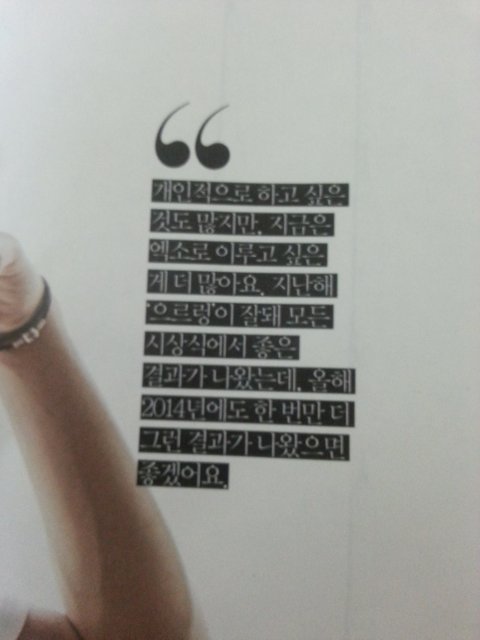 “
개인적으로 하고 싶은
것도 많지만, 지금은
엑소로 이루고 싶은
게 더 많아요. 지난해
‘으르렁’이 잘돼 모든
시상식에서 좋은
결과가 나왔는데, 올해
2014년에도 한 번만 더
그런 결과가 나왔으면
좋겠어요.